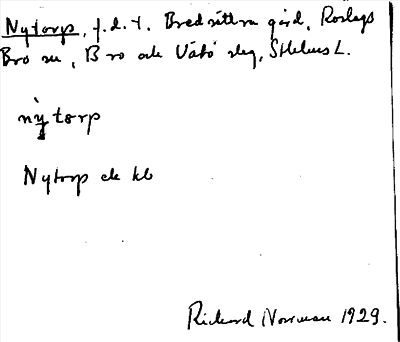 Nytorp, f.d. t. Bredsättra gård, Roslags
Bro sn, Bro och Vätö slg, Sthlms L.
nỳtorp
Nytorp ek kb
Rickard Norrman 1929.